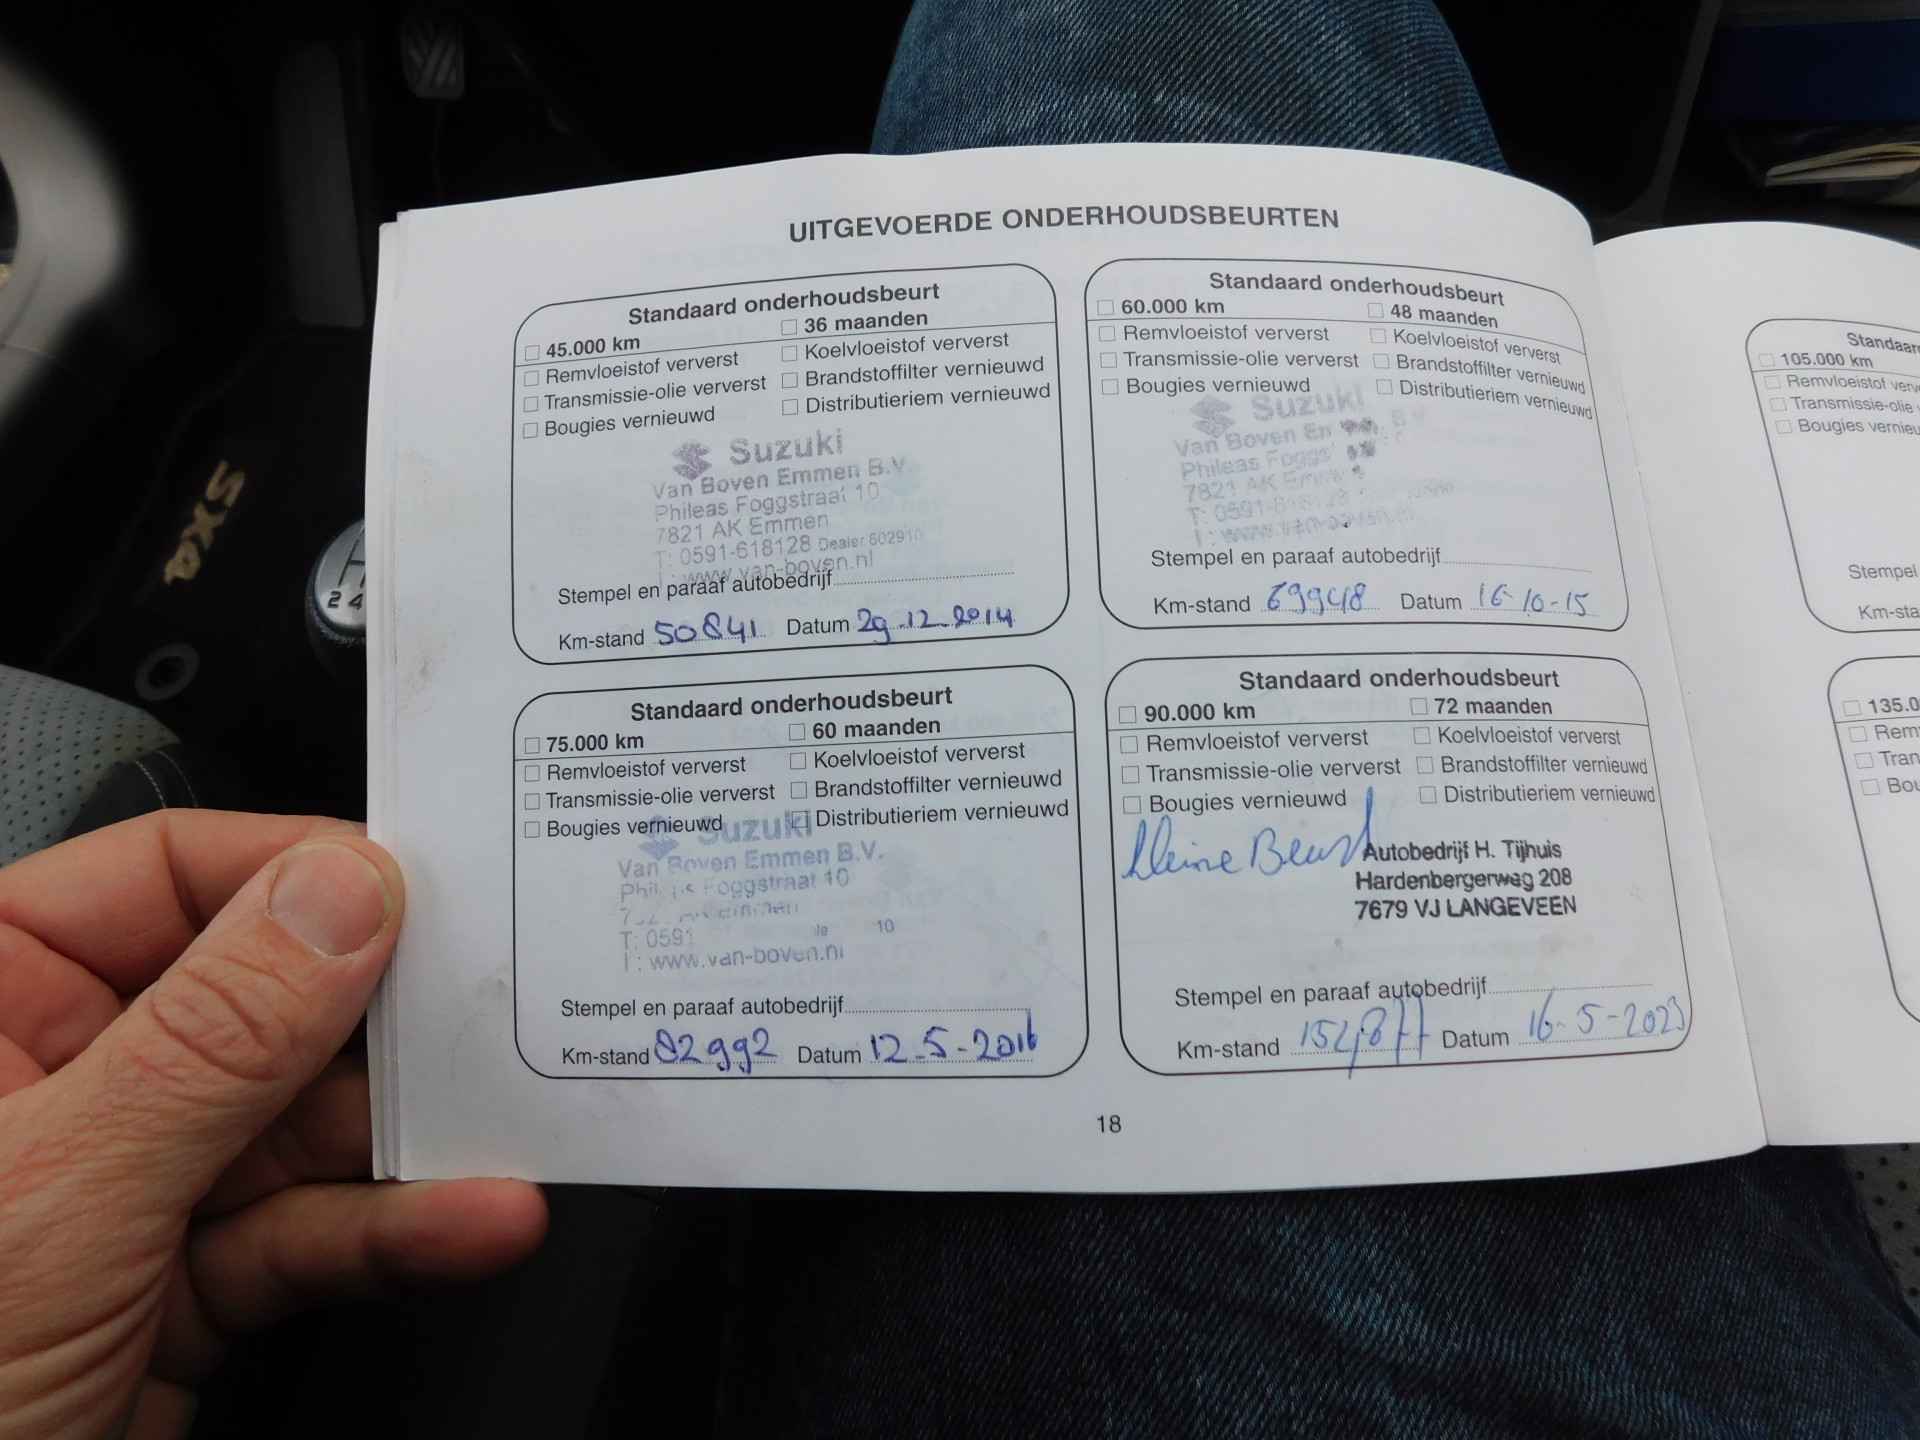 UITGEVOERDE ONDERHOUDSBEURTEN
Standaard onderhoudsbeurt
45.000 km 36 maanden
Remvloeistof ververst Koelvloeistof ververst
Transmissie-olie ververst Brandstoffilter vernieuwd
Bougies vernieuwd Distributieriem vernieuwd
Suzuki
Van Boven Emmen B.V.
Phileas Foggstraat 10
7821 AK Emmen
T: 0591-618128 Dealer 602910
I: www.van-boven.nl
Stempel en paraaf autobedrijf
Km-stand 50841 Datum 29-12-2014
Standaard onderhoudsbeurt
60.000 km 48 maanden
Remvloeistof ververst Koelvloeistof ververst
Transmissie-olie ververst Brandstoffilter vernieuwd
Bougies vernieuwd Distributieriem vernieuwd
Suzuki
Van Boven
Phileas
7821 AK
T: 0591-618128
Stempel en paraaf autobedrijf
Km-stand 69948 Datum 16-10-15
Standaard onderhoudsbeurt
75.000 km 60 maanden
Remvloeistof ververst Koelvloeistof ververst
Transmissie-olie ververst Brandstoffilter vernieuwd
Bougies vernieuwd Distributieriem vernieuwd
Suzuki
Van Boven Emmen B.V.
Foggstraat 10
T: 0591 10
I: www.van-boven.nl
Stempel en paraaf autobedrijf
Km-stand 82992 Datum 12-5-2016
Standaard onderhoudsbeurt
90.000 km 72 maanden
Remvloeistof ververst Koelvloeistof ververst
Transmissie-olie ververst Brandstoffilter vernieuwd
Bougies vernieuwd Distributieriem vernieuwd
kleine Beurt
Autobedrijf H. Tijhuis
Hardenbergerweg 208
7679 VJ LANGEVEEN
Stempel en paraaf autobedrijf
Km-stand 152,877 Datum 16-5-2023
18
Standaar
105.000 km
Remvloeistof verv
Transmissie-olie
Bougies vernieu
Stempel
Km-sta
135.0
Rem
Tran
Bou
SX4
2 4